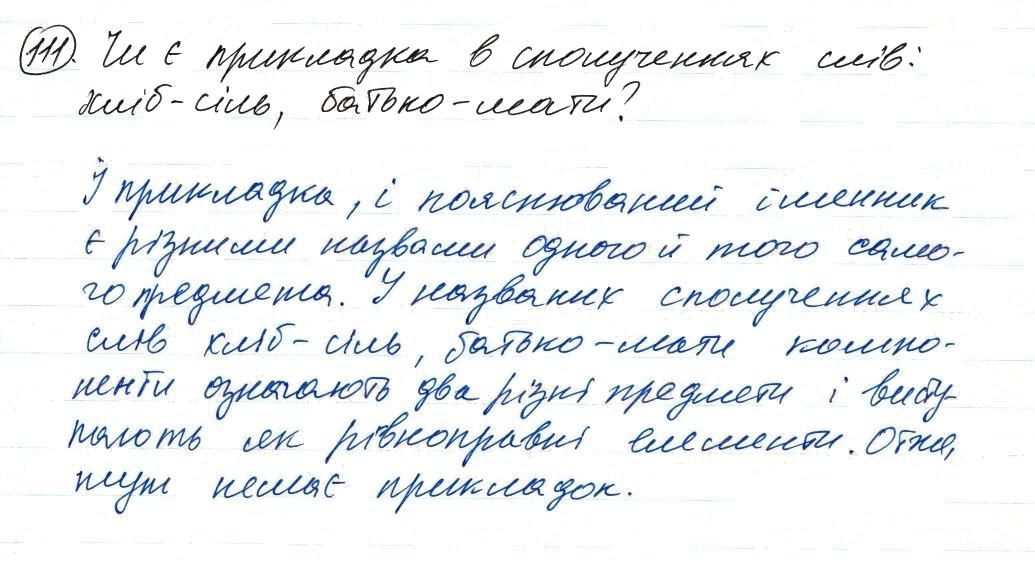 111. Чи є прикладка в сполученнях слів:
хліб-сіль, батько-мати?
І прикладка, і пояснюваний іменник
є різними назвами одного й того само-
го предмета. У названих сполученнях
слів хліб-сіль, батько-мати компо-
ненти означають два різні предмети і висту-
пають як рівноправні елементи. Отже,
тут немає прикладок.